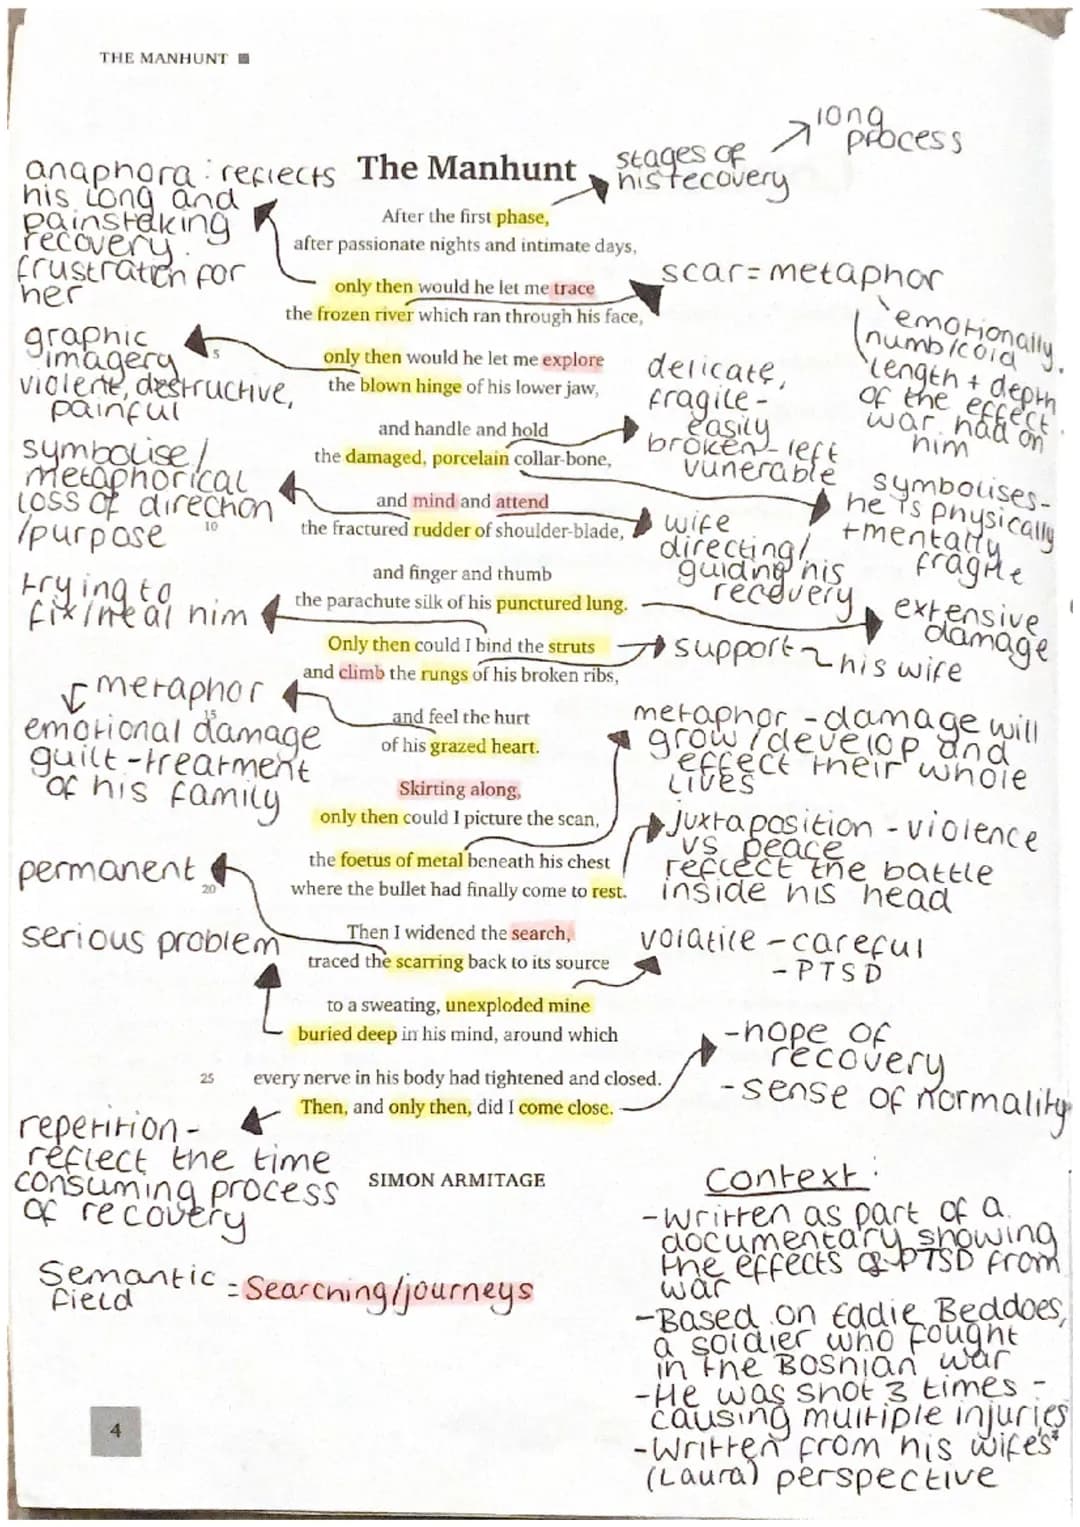 THE MANHUNT
long
process
The Manhunt
stages of
his recovery
anaphora : reflects
his long and
painstaking
recovery.
frustration for
her
After the first phase,
after passionate nights and intimate days,
only then would he let me trace
the frozen river which ran through his face,
scar = metaphor
emotionally
numb/cold
length + depth
of the effect
war had on
him
graphic
imagery
violent, destructive,
painful
5
only then would he let me explore
the blown hinge of his lower jaw,
delicate,
fragile -
easily
broken - left
vunerable
and handle and hold
the damaged, porcelain collar-bone,
symbolises -
he is physically
+ mentally
fragile
symbolise /
metaphorical
loss of direction
/purpose
10
and mind and attend
the fractured rudder of shoulder-blade,
wife
directing/
guiding his
recovery
and finger and thumb
the parachute silk of his punctured lung.
extensive
damage
trying to
fix/heal him
Only then could I bind the struts
and climb the rungs of his broken ribs,
support ~ his wife
metaphor
emotional damage
guilt - treatment
of his family
15
and feel the hurt
of his grazed heart.
metaphor - damage will
grow / develop and
effect their whole
lives
Skirting along,
only then could I picture the scan,
the foetus of metal beneath his chest
where the bullet had finally come to rest.
20
juxtaposition - violence
vs peace
reflect the battle
inside his head
permanent
serious problem
Then I widened the search,
traced the scarring back to its source
volatile - careful
- PTSD
to a sweating, unexploded mine
buried deep in his mind, around which
25
every nerve in his body had tightened and closed.
Then, and only then, did I come close.
- hope of
recovery
- sense of normality
repetition -
reflect the time
consuming process
of recovery
SIMON ARMITAGE
Semantic
field = Searching/journeys
Context :
- Written as part of a
documentary showing
the effects of PTSD from
war
- Based on Eddie Beddoes,
a soldier who fought
in the Bosnian war
- He was shot 3 times -
causing multiple injuries
- Written from his wife's
(Laura) perspective
4